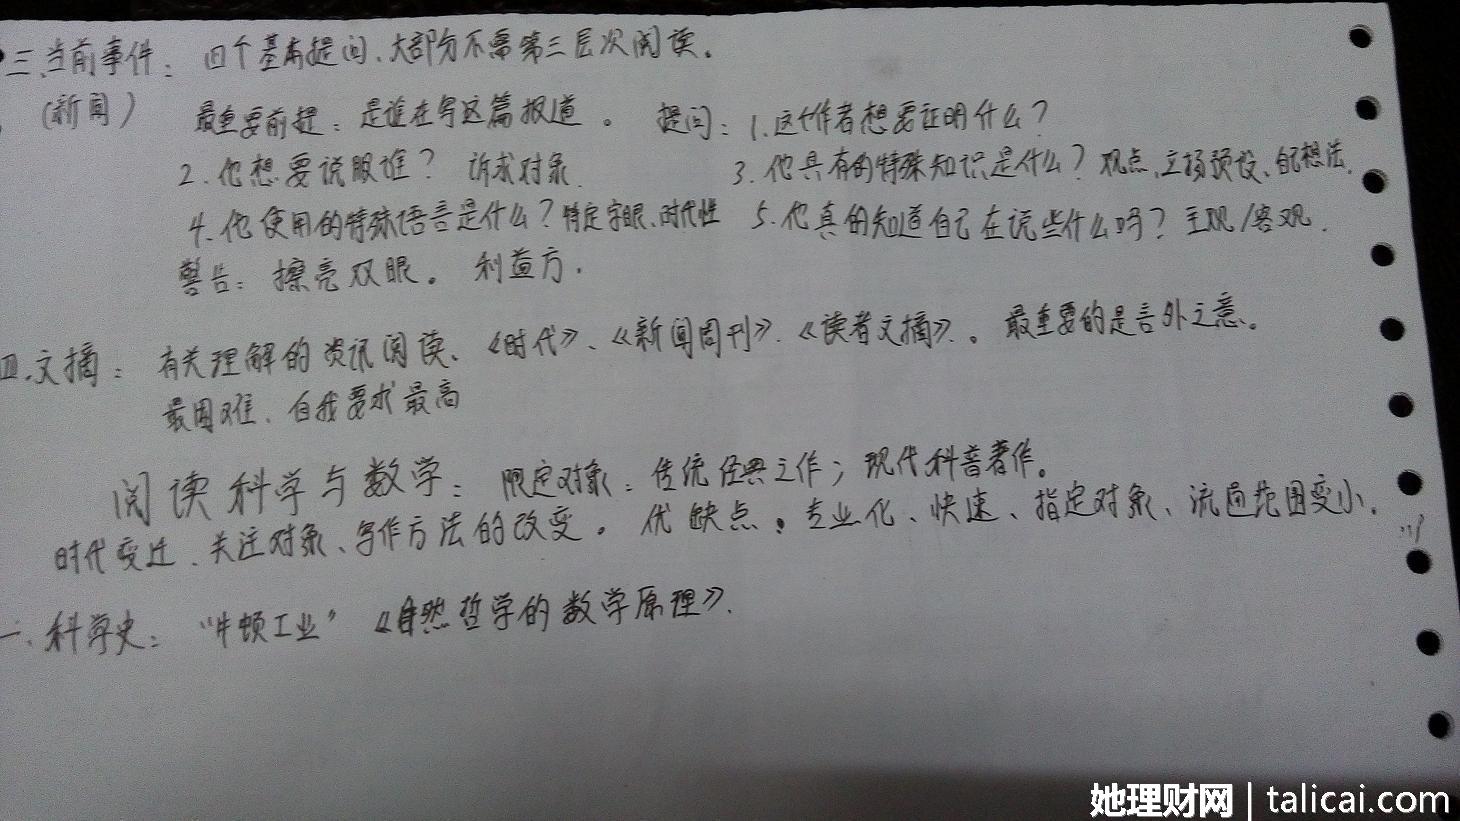 三、当前事件：四个基本提问、大部分不需第三层次阅读。
（新闻） 最重要前提：是谁在写这篇报道。 提问：1.这个作者想要证明什么？
2.他想要说服谁？ 诉求对象. 3.他具有的特殊知识是什么？观点、立场预设、自己想法.
4.他使用的特殊语言是什么？特定字眼、时代性 5.他真的知道自己在说些什么吗？主观/客观.
警告：擦亮双眼。 利益方.
四.文摘：有关理解的资讯阅读、《时代》、《新闻周刊》.《读者文摘》.。最重要的是言外之意。
最困难、自我要求最高
阅读科学与数学：限定对象：传统经典之作；现代科普著作。
时代变迁、关注对象、写作方法的改变。优缺点：专业化、快速、指定对象、流通范围变小.
一、科学史：“牛顿工业”《自然哲学的数学原理》.
她理财网 | talicai.com